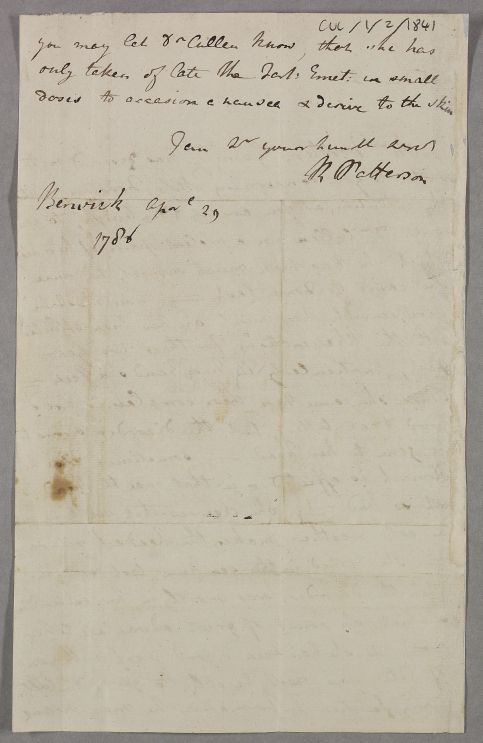 CUL/1/2/1841
you may let Dr Cullen know, that she has
only taken of late the Tart: Emet: in small
Doses to occasion a nausea & derive to the skin
I am Sr your humbl Servt
R Patterson
Berwick Aprl 29
1786